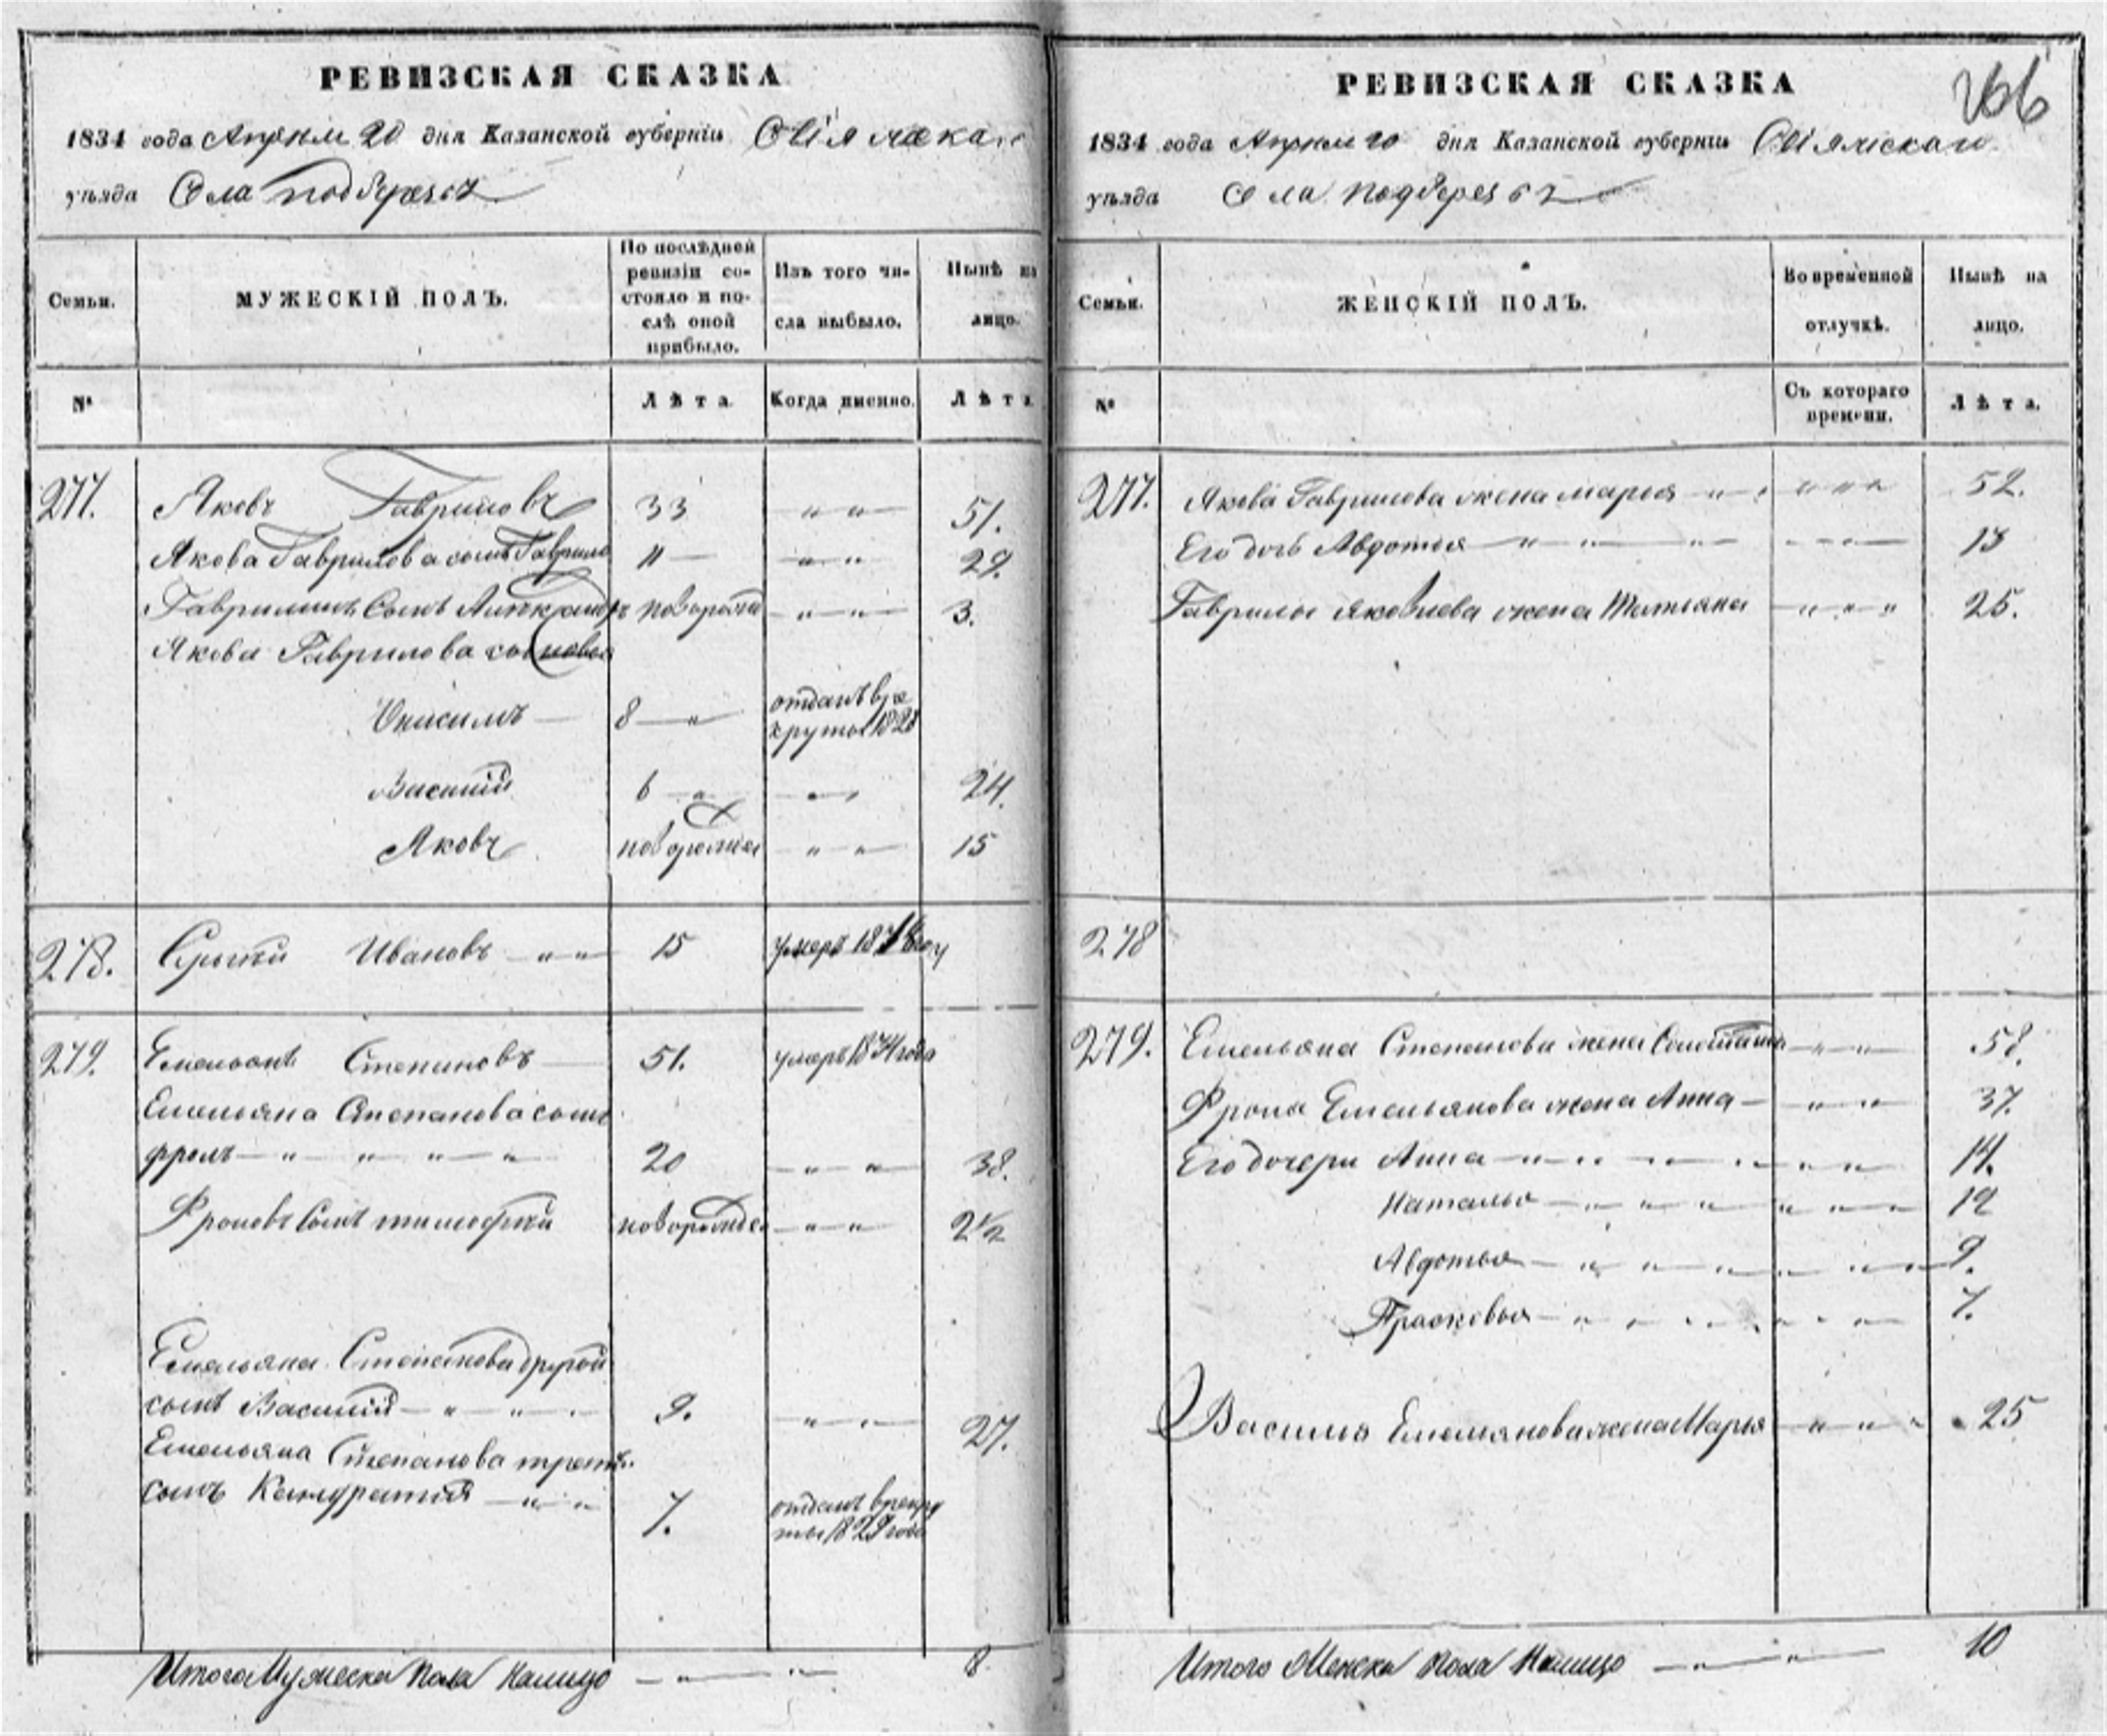 РЕВИЗСКАЯ СКАЗКА
1834 года Апреля 20 дня Казанской губернiи Свiяжскаго
уѣзда Села подберезья
Семьи.
МУЖЕСКIЙ ПОЛЪ.
По послѣдней ревизiи со-
стояло и по-
слѣ оной
прибыло.
Изъ того чи-
сла выбыло.
Нынѣ на
лицо.
№
Лѣта
Когда именно.
Лѣта
277.
Яковъ Гавриловъ 33 51.
Якова Гаврилова сынъ Гаврило 11 29.
Гавриловъ Сынъ новорожд 3.
Якова Гаврилова сыновья
Онисимъ 8 отданъ в ре
круты 1828
Василий 6 24.
Яковъ новорожден 15
278. Ивановъ 15 умеръ году
279. Емельянъ Степановъ 51. умеръ 1831 года
Емельяна Степанова сынъ
фролъ 20 38.
Фроловъ Сынъ тимофей новорожден 2½
Емельяна Степанова другой
сынъ Василий 9. 27.
Емельяна Степанова трети
сынъ Кандратий 7. отданъ в рекру
ты 1829 года
Итого Мужеска пола Налицо 8
266
РЕВИЗСКАЯ СКАЗКА
1834 года Апреля 20 дня Казанской губернiи Свiяжскаго
уѣзда Села подберезья
Семьи.
ЖЕНСКIЙ ПОЛЪ.
Во временной
отлучкѣ.
Нынѣ на
лицо.
№
Съ котораго
времени.
Лѣта.
277. Якова Гаврилова жена марья 52.
Его дочь Авдотья 13
Гаврилы Яковлева жена Татьяна 25.
278
279. Емельяна Степанова жена 58.
Фрола Емельянова жена Анна 37.
Его дочери Анна 14.
Наталья 12
Авдотья 9.
Прасковья 7.
Василья Емельянова жена Марья 25
Итого Женска пола Налицо 10